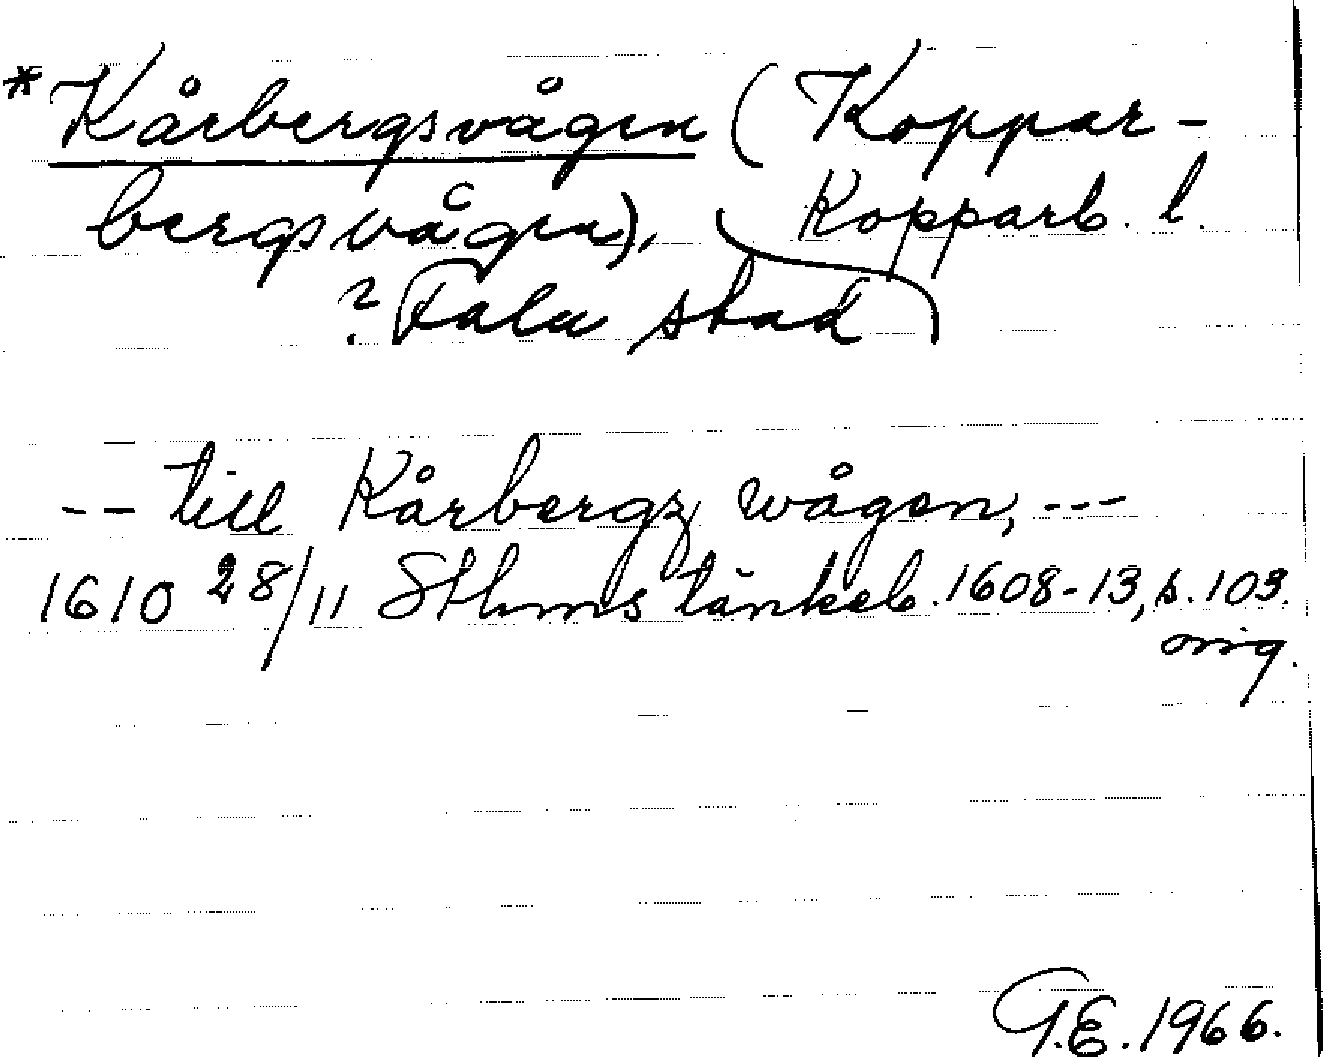 *Kårbergsvågen (Koppar-
bergsvågen), Kopparb. l.
? Falu stad
-- till Kårbergz wågen, ---
1610 28/11 Sthms tänkeb. 1608-13, s. 103.
orig.
G.E. 1966.